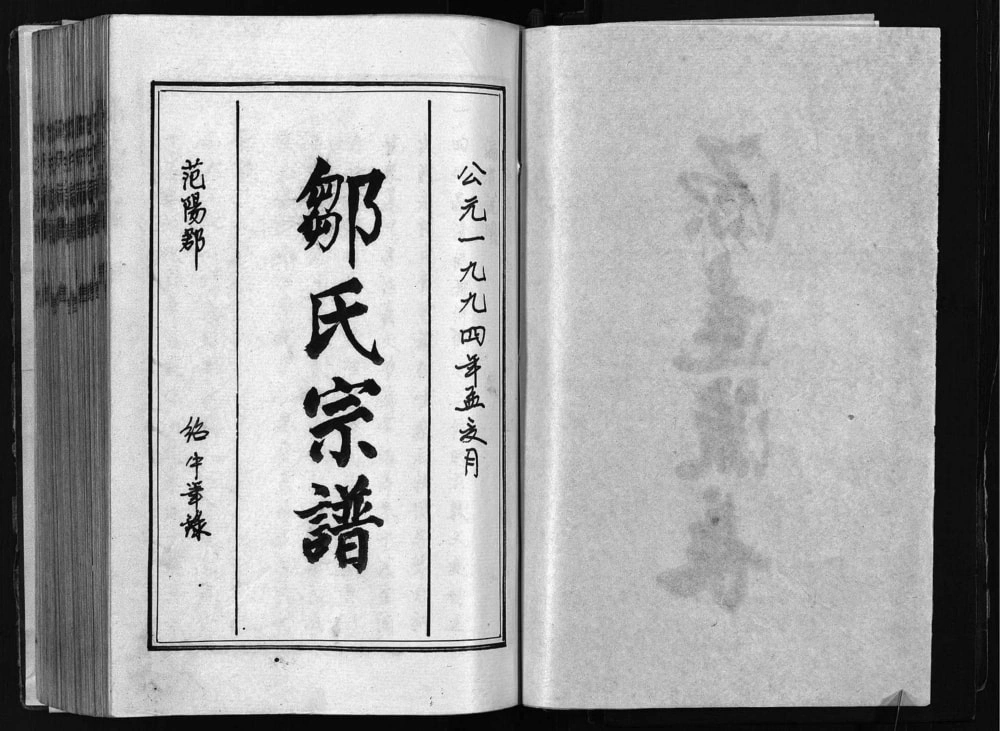 公元一九九四年孟夏月
鄒氏宗譜
范陽郡
紹中筆錄